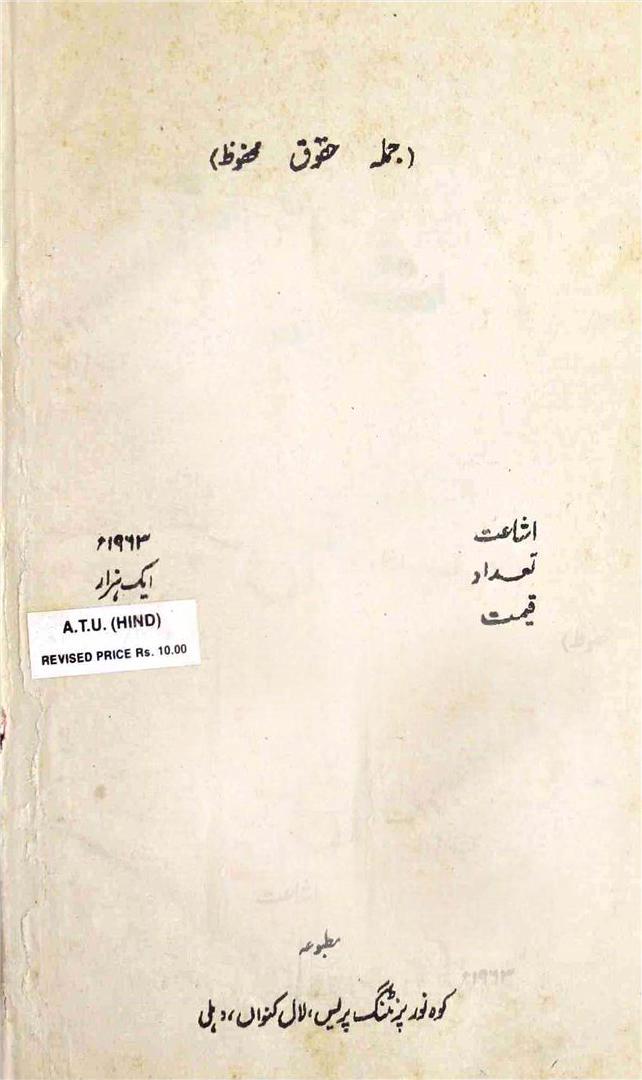 (جملہ حقوق محفوظ)
اشاعت ۱۹۶۳ء
تعداد ایک ہزار
قیمت
A.T.U. (HIND)
REVISED PRICE Rs. 10.00
مطبوعہ
کوہ نور پرنٹنگ پریس، لال کنواں، دہلی